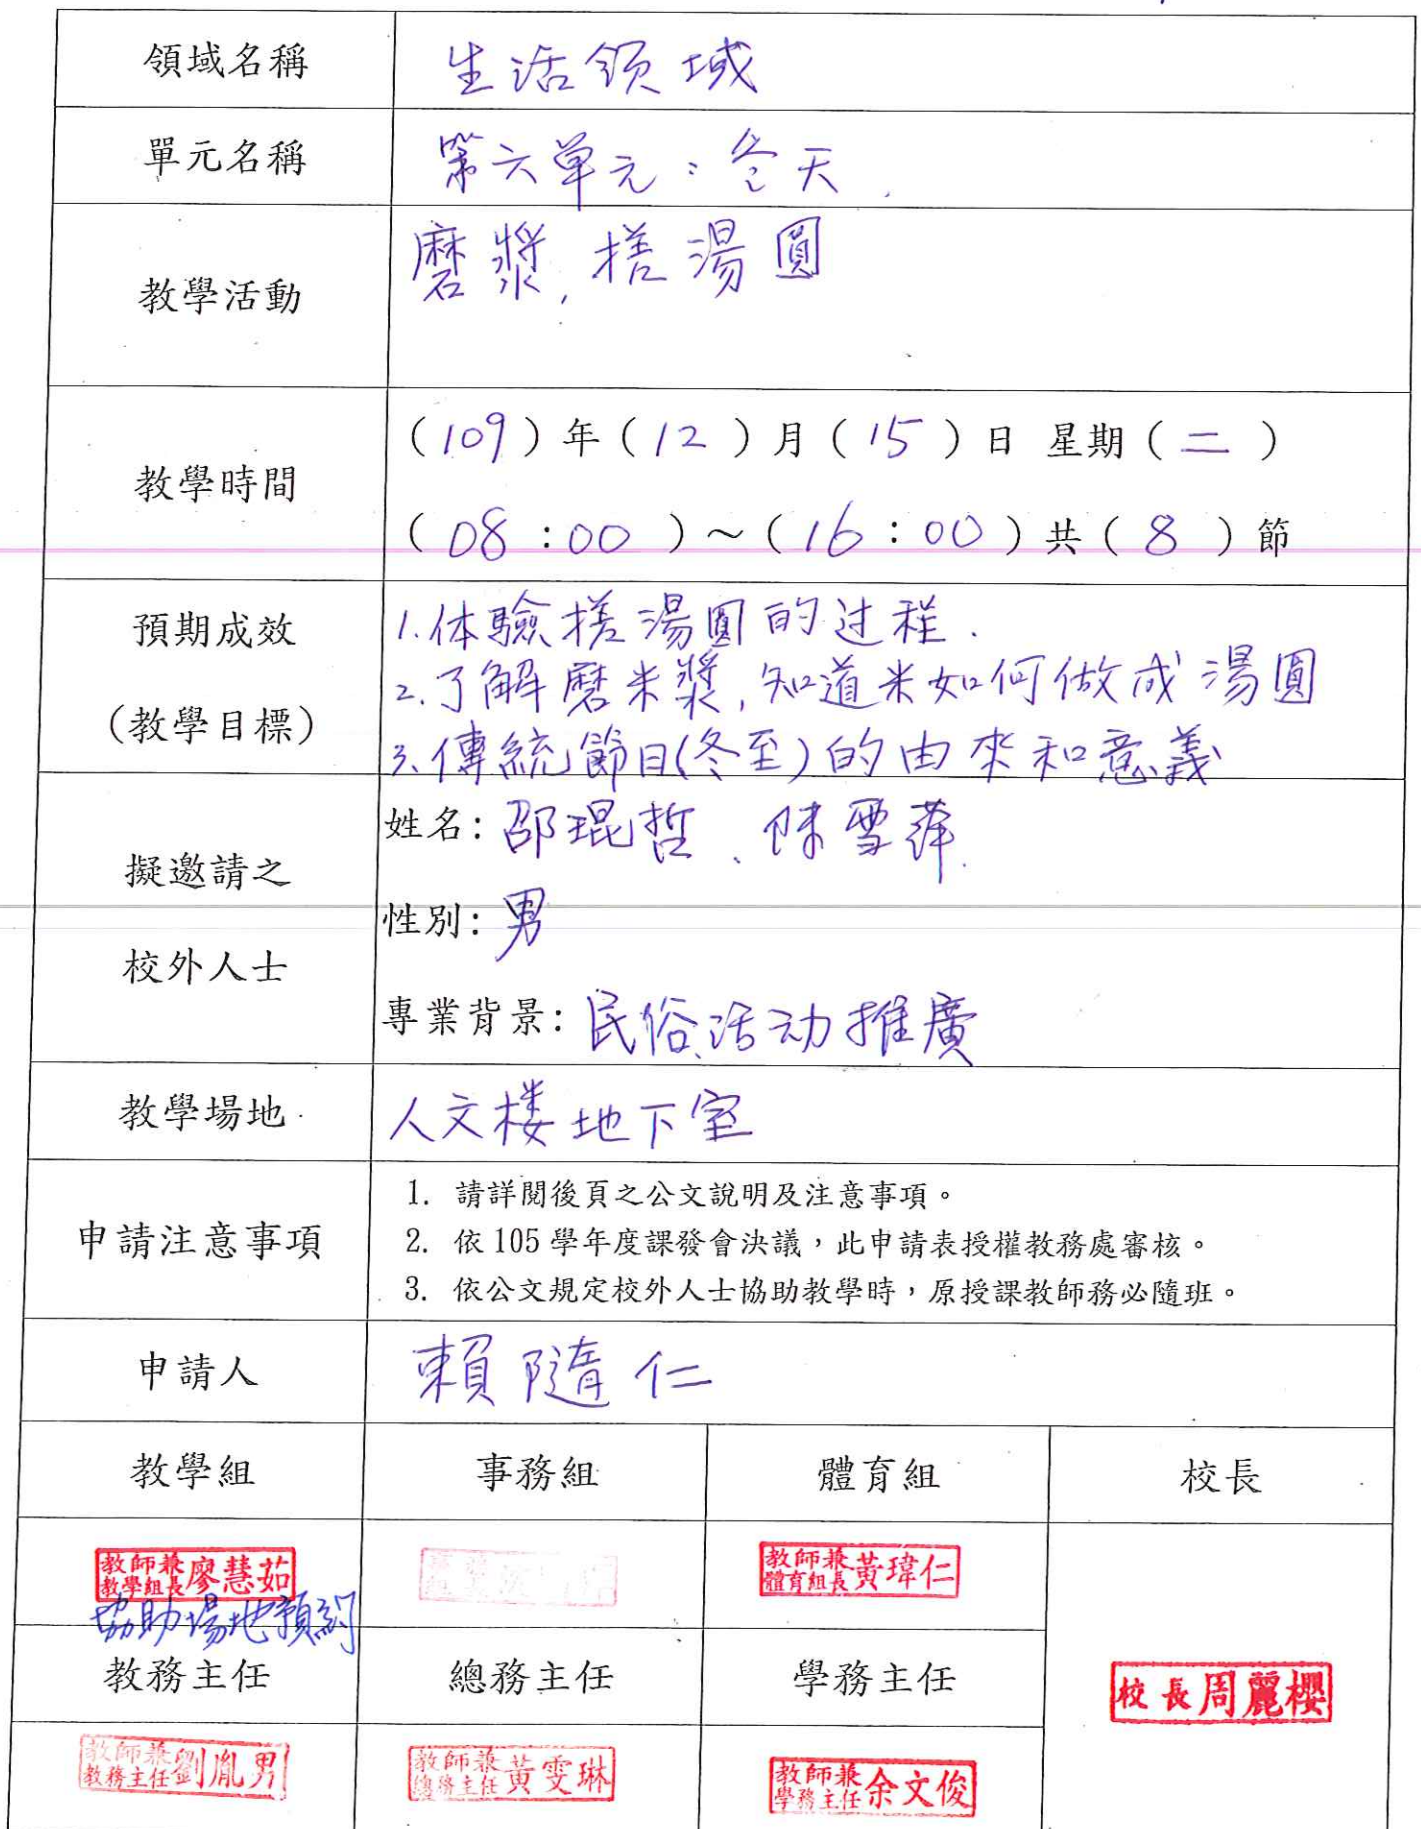 領域名稱 生活領域
單元名稱 第六单元：冬天
教學活動 磨漿，搓湯圓
教學時間 (109)年(12)月(15)日 星期(二)
(08:00)～(16:00)共(8)節
預期成效
(教學目標)
1.体驗搓湯圓的过程.
2.了解磨米漿,知道米如何做成湯圓
3.傳統節日(冬至)的由來和意義
擬邀請之
校外人士
姓名：邵琨哲、陳雪萍
性別：男
專業背景：民俗活动推廣
教學場地 人文楼地下室
申請注意事項
1. 請詳閱後頁之公文說明及注意事項。
2. 依105學年度課發會決議，此申請表授權教務處審核。
3. 依公文規定校外人士協助教學時，原授課教師務必隨班。
申請人 賴隨仁
教學組 事務組 體育組 校長
教師兼教學組長廖慧茹 教師兼體育組長黃瑋仁
協助場地預約
教務主任 總務主任 學務主任
校長周麗櫻
教師兼教務主任劉胤男 教師兼總務主任黃雯琳 教師兼學務主任余文俊